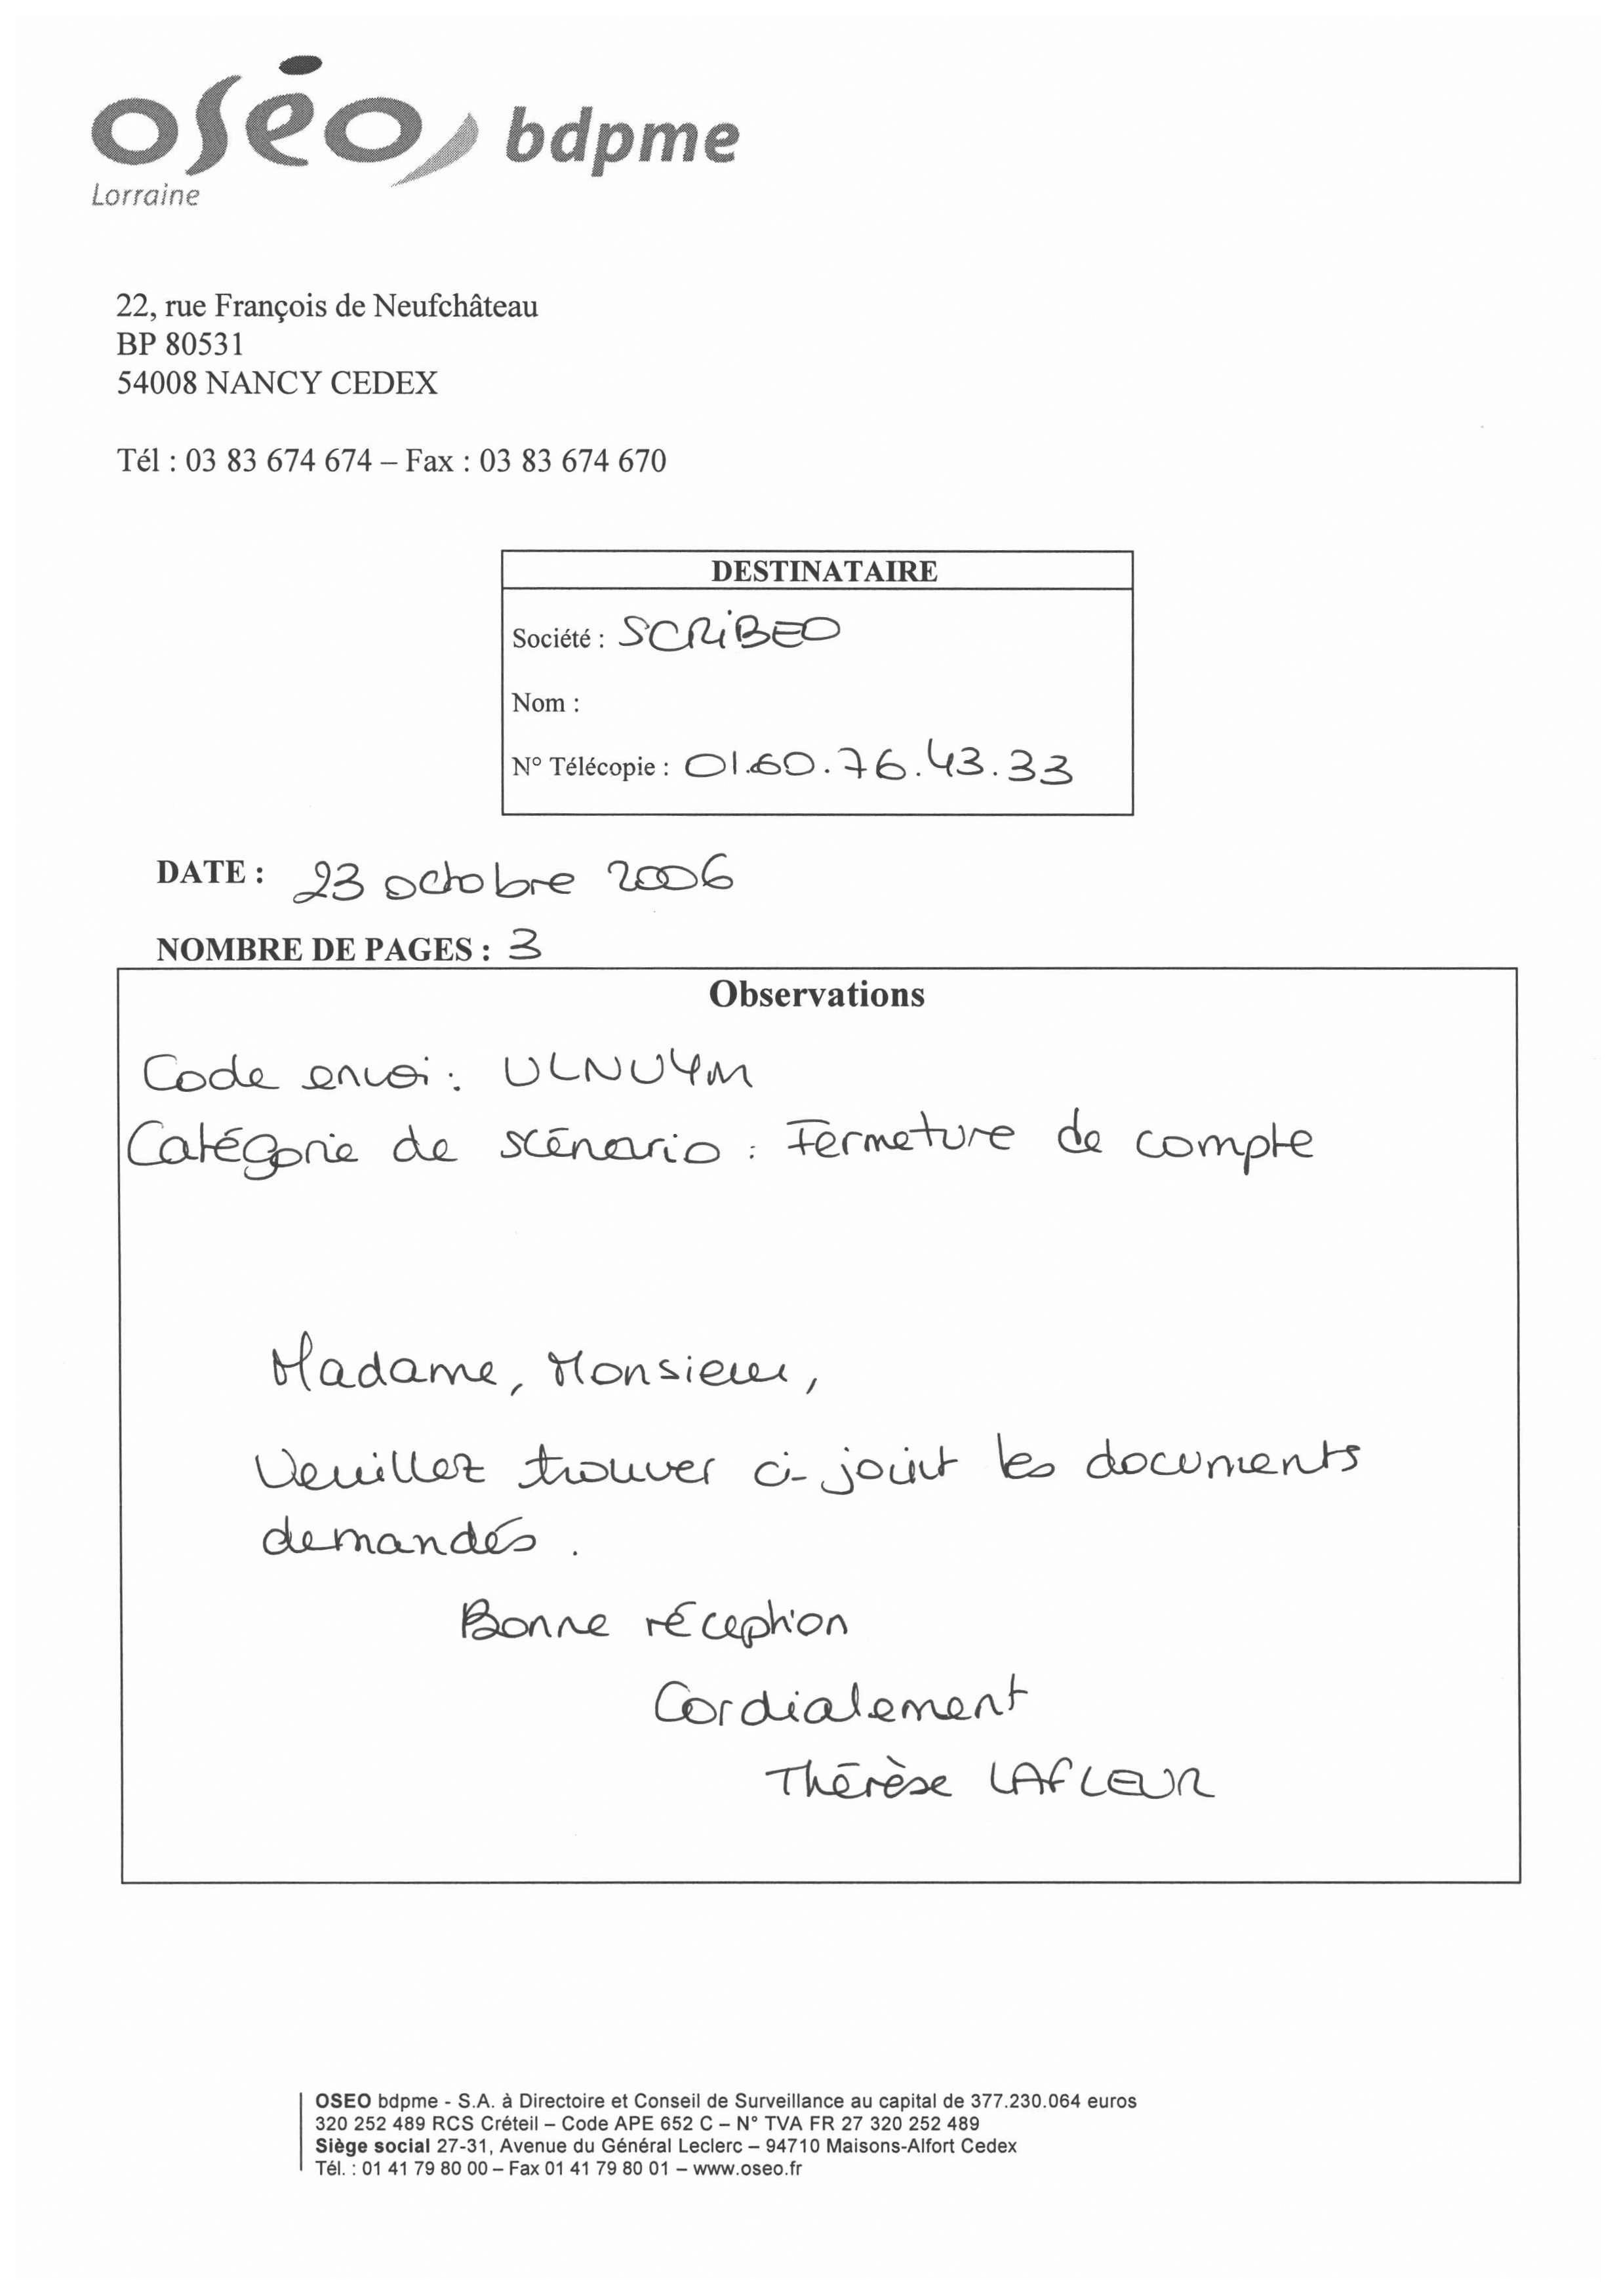 oséo bdpme
Lorraine
22, rue François de Neufchâteau
BP 80531
54008 NANCY CEDEX
Tél : 03 83 674 674 – Fax : 03 83 674 670
DESTINATAIRE
Société : SCRIBEO
Nom :
N° Télécopie : 01.60.76.43.33
DATE : 23 octobre 2006
NOMBRE DE PAGES : 3
Observations
Code envoi : ULNU4M
Catégorie de scénario : Fermeture de compte
Madame, Monsieur,
Veuillez trouver ci-joint les documents
demandés.
Bonne réception
Cordialement
Thérèse LAFLEUR
OSEO bdpme - S.A. à Directoire et Conseil de Surveillance au capital de 377.230.064 euros
320 252 489 RCS Créteil – Code APE 652 C – N° TVA FR 27 320 252 489
Siège social 27-31, Avenue du Général Leclerc – 94710 Maisons-Alfort Cedex
Tél. : 01 41 79 80 00 – Fax 01 41 79 80 01 – www.oseo.fr